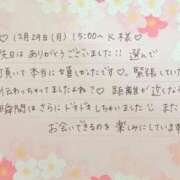 ♡12月29日(月)15:00〜 K様♡
先日はありがとうございました!! 選んで
頂いて本当に嬉しかったです♡ 緊張してい
伝わっちゃってましたよね? 距離が近く
瞬間はさらにドキドキしちゃいました♡ また
お会いできるのを楽しみにしています